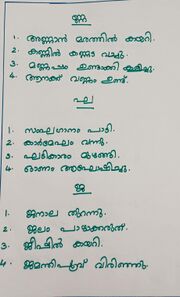 ണ്ണ
1. അണ്ണാൻ മരത്തിൽ കയറി.
2. കണ്ണിൽ കണ്ണട വച്ചു.
3. മണ്ണപ്പം ഉണ്ടാക്കി കളിച്ചു.
4. ആനക്ക് വണ്ണം ഉണ്ട്.
ഘ
1. സംഘഗാനം പാടി.
2. കാർമേഘം വന്നു.
3. ഘടികാരം മുഴങ്ങി.
4. ഓണം ആഘോഷിച്ചു.
ജ
1. ജനാല തുറന്നു.
2. ജലം പാഴാക്കരുത്
3. ജീപ്പിൽ കയറി.
4. ജമന്തിപ്പൂവ് വിരിഞ്ഞു.